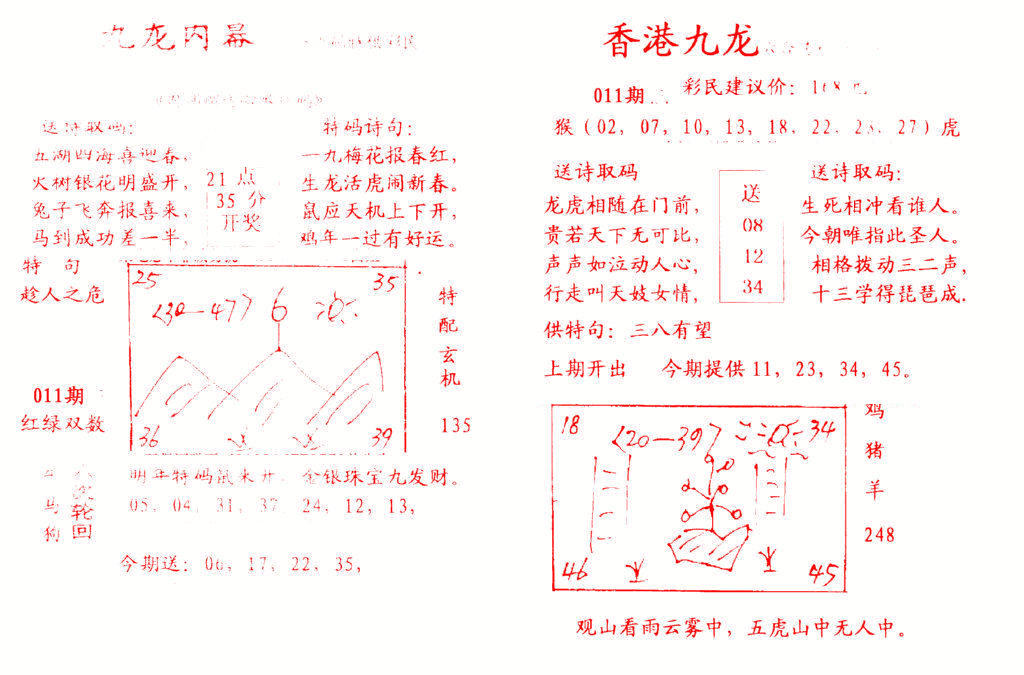 九龙内幕
送诗取码：
五湖四海喜迎春，
火树银花明盛开，
兔子飞奔报喜来，
马到成功差一半，
21点
35分
开奖
特码诗句：
一九梅花报春红，
生龙活虎闹新春。
鼠应天机上下开，
鸡年一过有好运。
特 句
趁人之危
25
35
<30—47> 6
36
39
特配玄机
135
011期
红绿双数
明年特码鼠来开，金银珠宝九发财。
马
狗
轮回
05，04，31，37，24，12，13，
今期送：06，17，22，35，
香港九龙
011期
彩民建议价：168
猴（02，07，10，13，18，22，23，27）虎
送诗取码
龙虎相随在门前，
贵若天下无可比，
声声如泣动人心，
行走叫天妓女情，
送
08
12
34
送诗取码：
生死相冲看谁人。
今朝唯指此圣人。
相格拨动三二声，
十三学得琵琶成.
供特句：三八有望
上期开出 今期提供11，23，34，45。
18
<20—39>
34
46
45
鸡
猪
羊
248
观山看雨云雾中，五虎山中无人中。